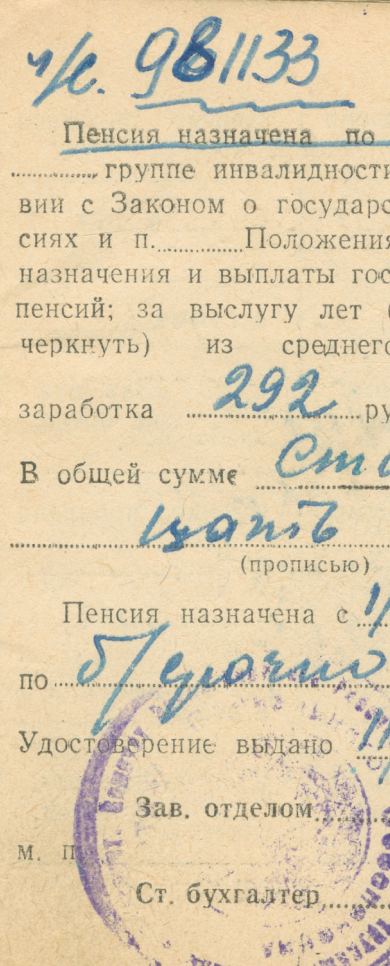 ч/с. 981133
Пенсия назначена по
группе инвалидности
вии с Законом о государс
сиях и п. Положения
назначения и выплаты гос
пенсий; за выслугу лет (
черкнуть) из среднего
заработка 292 ру
В общей сумме Ста
цать
(прописью)
Пенсия назначена с 1/
по б/срочно
Удостоверение выдано 11
Зав. отделом
м. п
Ст. бухгалтер